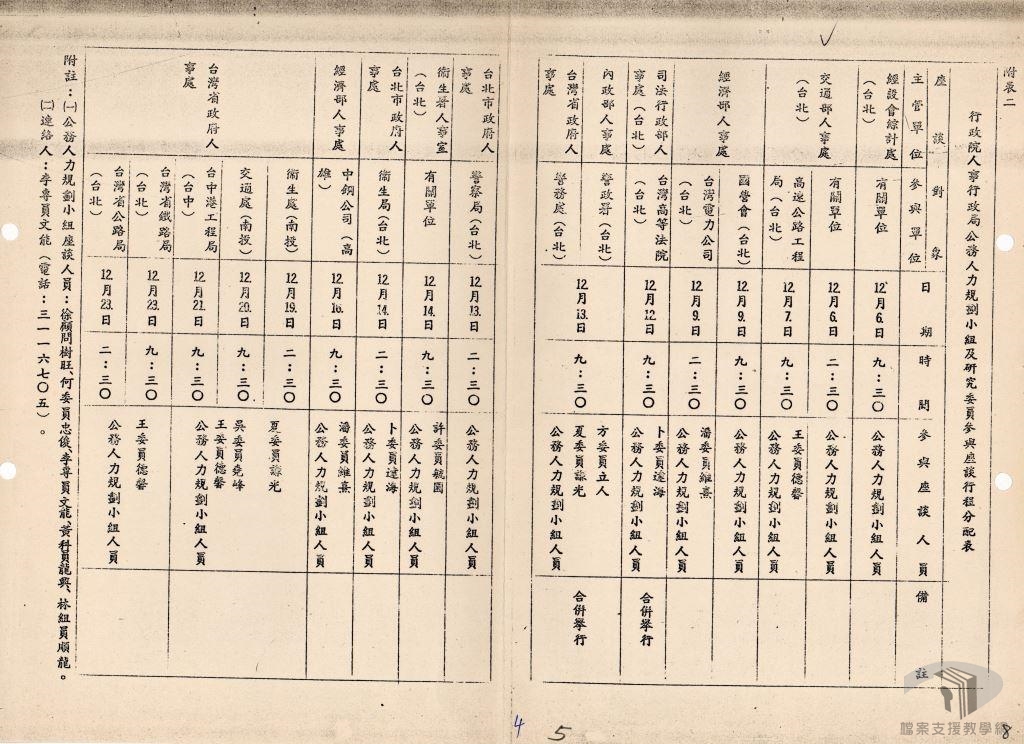 附表二
行政院人事行政局公務人力規劃小組及研究委員參與座談行程分配表
座談對象
主管單位
參與單位
日期
時間
參與座談人員
備註
經設會綜計處(台北)
有關單位
12月6.日
九:三〇
公務人力規劃小組人員
交通部人事處(台北)
有關單位
12月6.日
二:三〇
公務人力規劃小組人員
高速公路工程局(台北)
12月7.日
九:三〇
王委員德馨
公務人力規劃小組人員
經濟部人事處
國營會(台北)
12月9.日
九:三〇
公務人力規劃小組人員
台灣電力公司(台北)
12月9.日
二:三〇
潘委員維熹
公務人力規劃小組人員
司法行政部人事處(台北)
台灣高等法院
12月12.日
九:三〇
卜委員達海
公務人力規劃小組人員
合併舉行
內政部人事處
警政署(台北)
台灣省政府人事處
警務處(台北)
12月13.日
九:三〇
方委員立人
夏委員謙光
公務人力規劃小組人員
合併舉行
台北市政府人事處
警察局(台北)
12月13.日
二:三〇
公務人力規劃小組人員
衛生署人事室(台北)
有關單位
12月14.日
九:三〇
許委員毓圃
公務人力規劃小組人員
台北市政府人事處
衛生局(台北)
12月14.日
二:三〇
卜委員達海
公務人力規劃小組人員
經濟部人事處
中鋼公司(高雄)
12月16.日
九:三〇
潘委員維熹
公務人力規劃小組人員
台灣省政府人事處
衛生處(南投)
12月19.日
二:三〇
夏委員謙光
交通處(南投)
12月20.日
九:三〇
吳委員堯峰
台中港工程局(台中)
12月21.日
九:三〇
王委員德馨
公務人力規劃小組人員
台灣省鐵路局(台北)
12月23.日
九:三〇
王委員德馨
台灣省公路局(台北)
12月23.日
二:三〇
公務人力規劃小組人員
附註:㈠公務人力規劃小組座談人員:徐顧問樹旺、何委員忠俊、李專員文龍、黃科員龍興、林組員順龍。
㈡連絡人:李專員文龍(電話:三一一六七〇五)。
4
5
8
檔案支援教學網